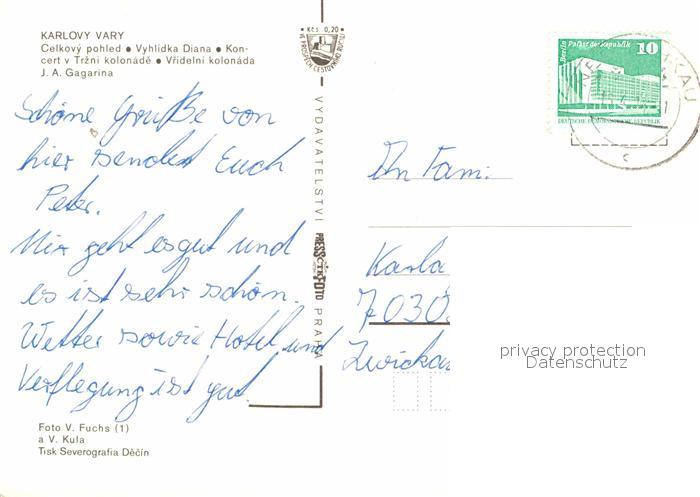 KARLOVY VARY
Celkový pohled • Vyhlídka Diana • Kon-
cert v Tržní kolonádě • Vřídelní kolonáda
J. A. Gagarina
Kčs 0,20
VE PROSPĚCH CESTOVNÍHO RUCHU
Schöne Grüße von
hier sendet Euch
Peter.
Mir geht es gut und
es ist sehr schön.
Wetter sowie Hotel und
Verflegung ist gut.
Foto V. Fuchs (1)
a V. Kula
Tisk Severografia Děčín
VYDAVATELSTVÍ PRESSFOTO PRAHA
Berlin Palast der Republik 10
DEUTSCHE DEMOKRATISCHE REPUBLIK
KAU
c
An Fam.
Karla
7030
Zwickau
privacy protection
Datenschutz